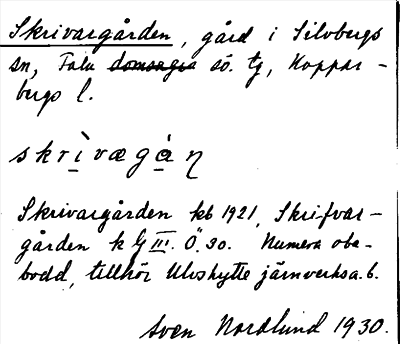 Skrivargården, gård i Silvbergs
sn, Falu domsaga sö. tg, Koppar-
bergs l.
skrìvægá̱ƞ
Skrivargården kb 1921, Skrifvar-
gården k lj III. Ö. 30. Numera obe-
bodd, tillhör Ulvshytte järnverksa.b.
Sven Nordlund 1930.